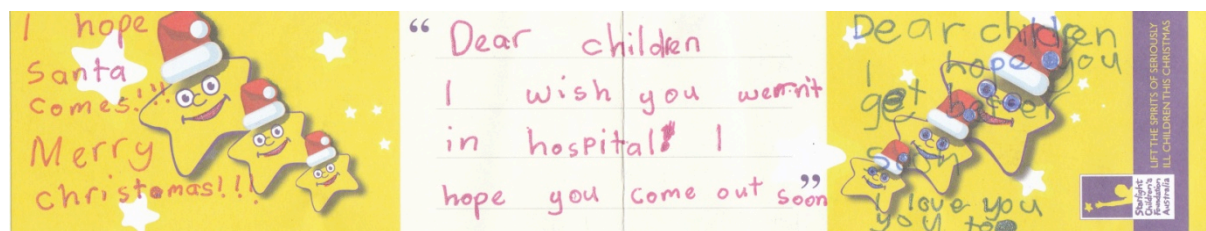 I hope
Santa
comes!!!
Merry
christomas!!!
“ Dear children
I wish you wernit
in hospital I
hope you come out soon ”
Dear children
I hope you
get better
I love you
you too
LIFT THE SPIRITS OF SERIOUSLY
ILL CHILDREN THIS CHRISTMAS
Starlight
Children's
Foundation
Australia